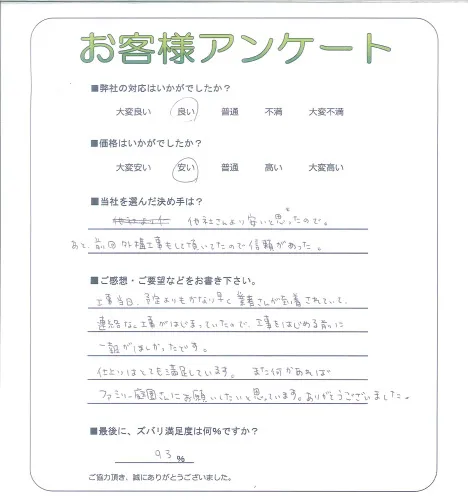 お客様アンケート
■弊社の対応はいかがでしたか?
大変良い 良い 普通 不満 大変不満
■価格はいかがでしたか?
大変安い 安い 普通 高い 大変高い
■当社を選んだ決め手は?
他社さんより安いと思ったので。
あと、前回外構工事もして頂いてたので信頼があった。
■ご感想・ご要望などをお書き下さい。
工事当日、予定よりもかなり早く業者さんが到着されていて、
連絡なく工事がはじまっていたので、工事をはじめる前に
一報がほしかったです。
仕上りはとても満足しています。 また何かあれば
ファミリー庭園さんにお願いしたいと思っています。ありがとうございました。
■最後に、ズバリ満足度は何%ですか?
93 %
ご協力頂き、誠にありがとうございました。